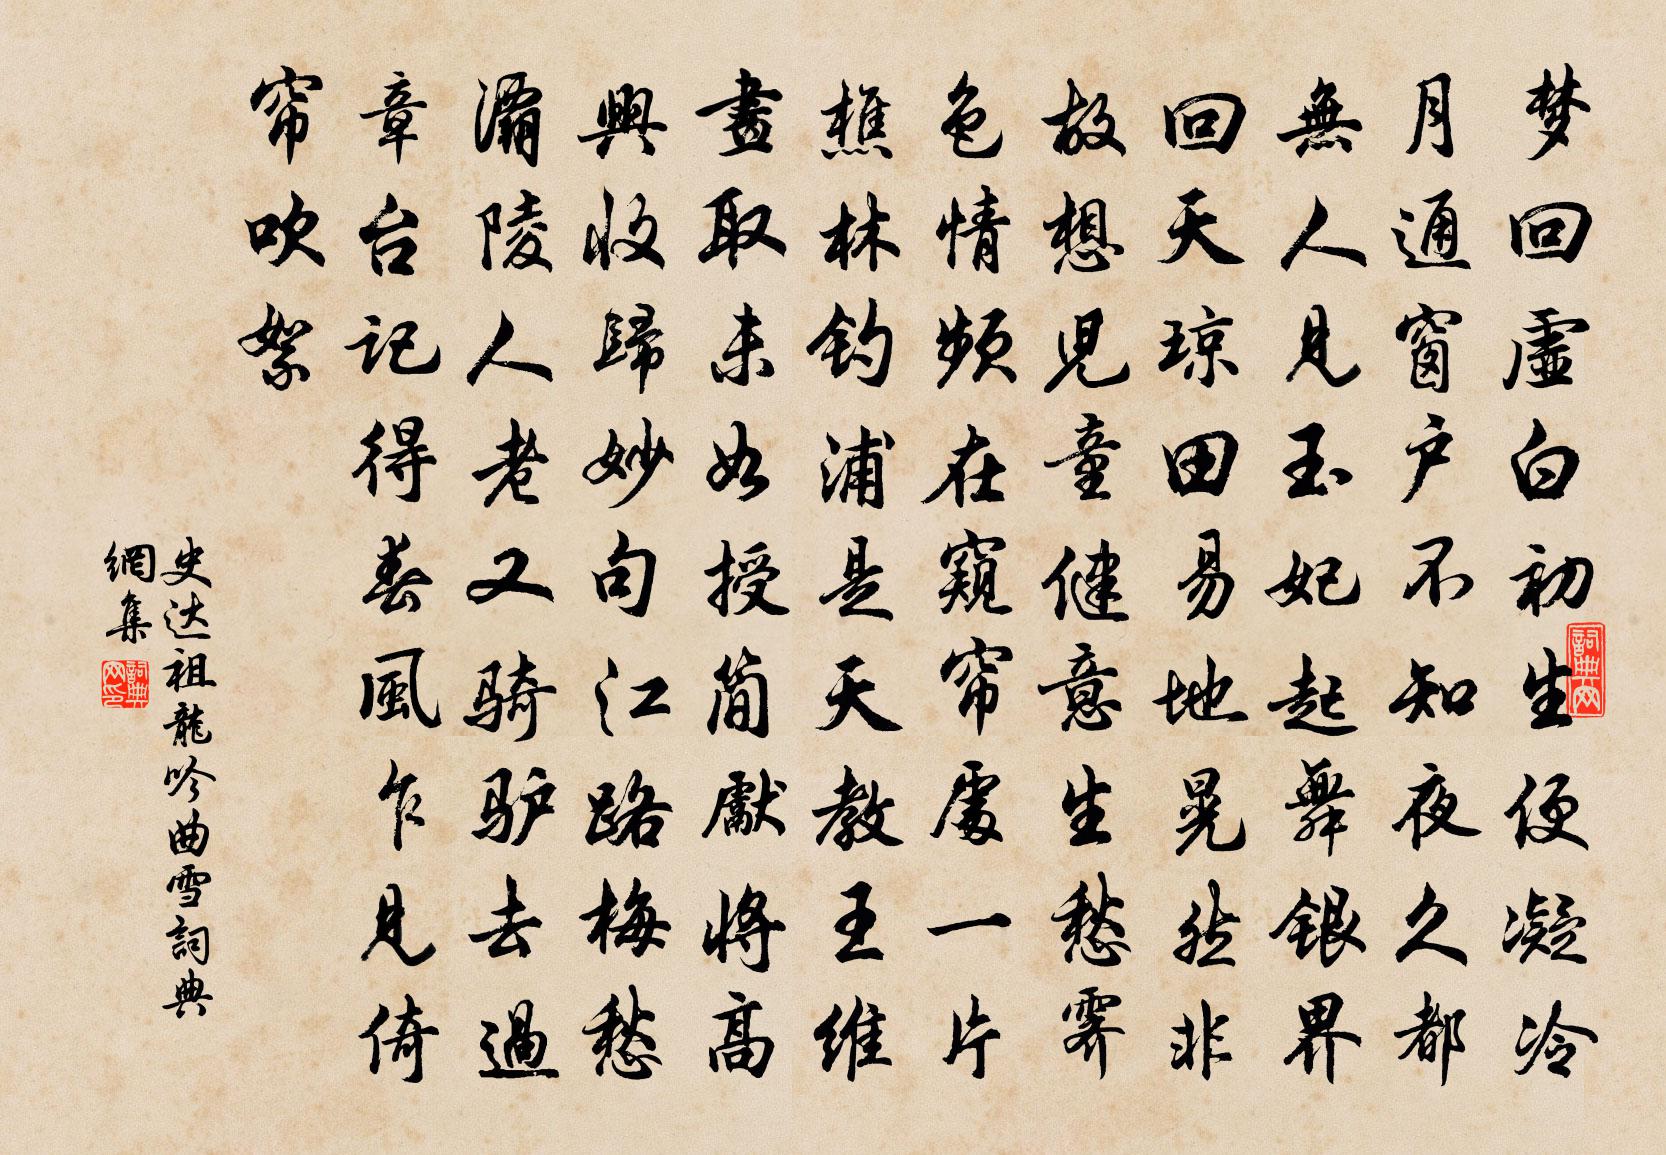 梦回虛白初生便凝冷
月通窗户不知夜久都
無人見玉妃起舞銀界
回天琼田易地晃然非
故想児童健意生愁霽
色情頻在窺帘處一片
樵林钓浦是天教王维
畫取未如授简獻将高
興收歸妙句江路梅愁
灞陵人老又骑驴去過
章台記得春風乍見倚
帘吹絮
史达祖龍吟曲雪詞典
網集
詞典网
詞典网印